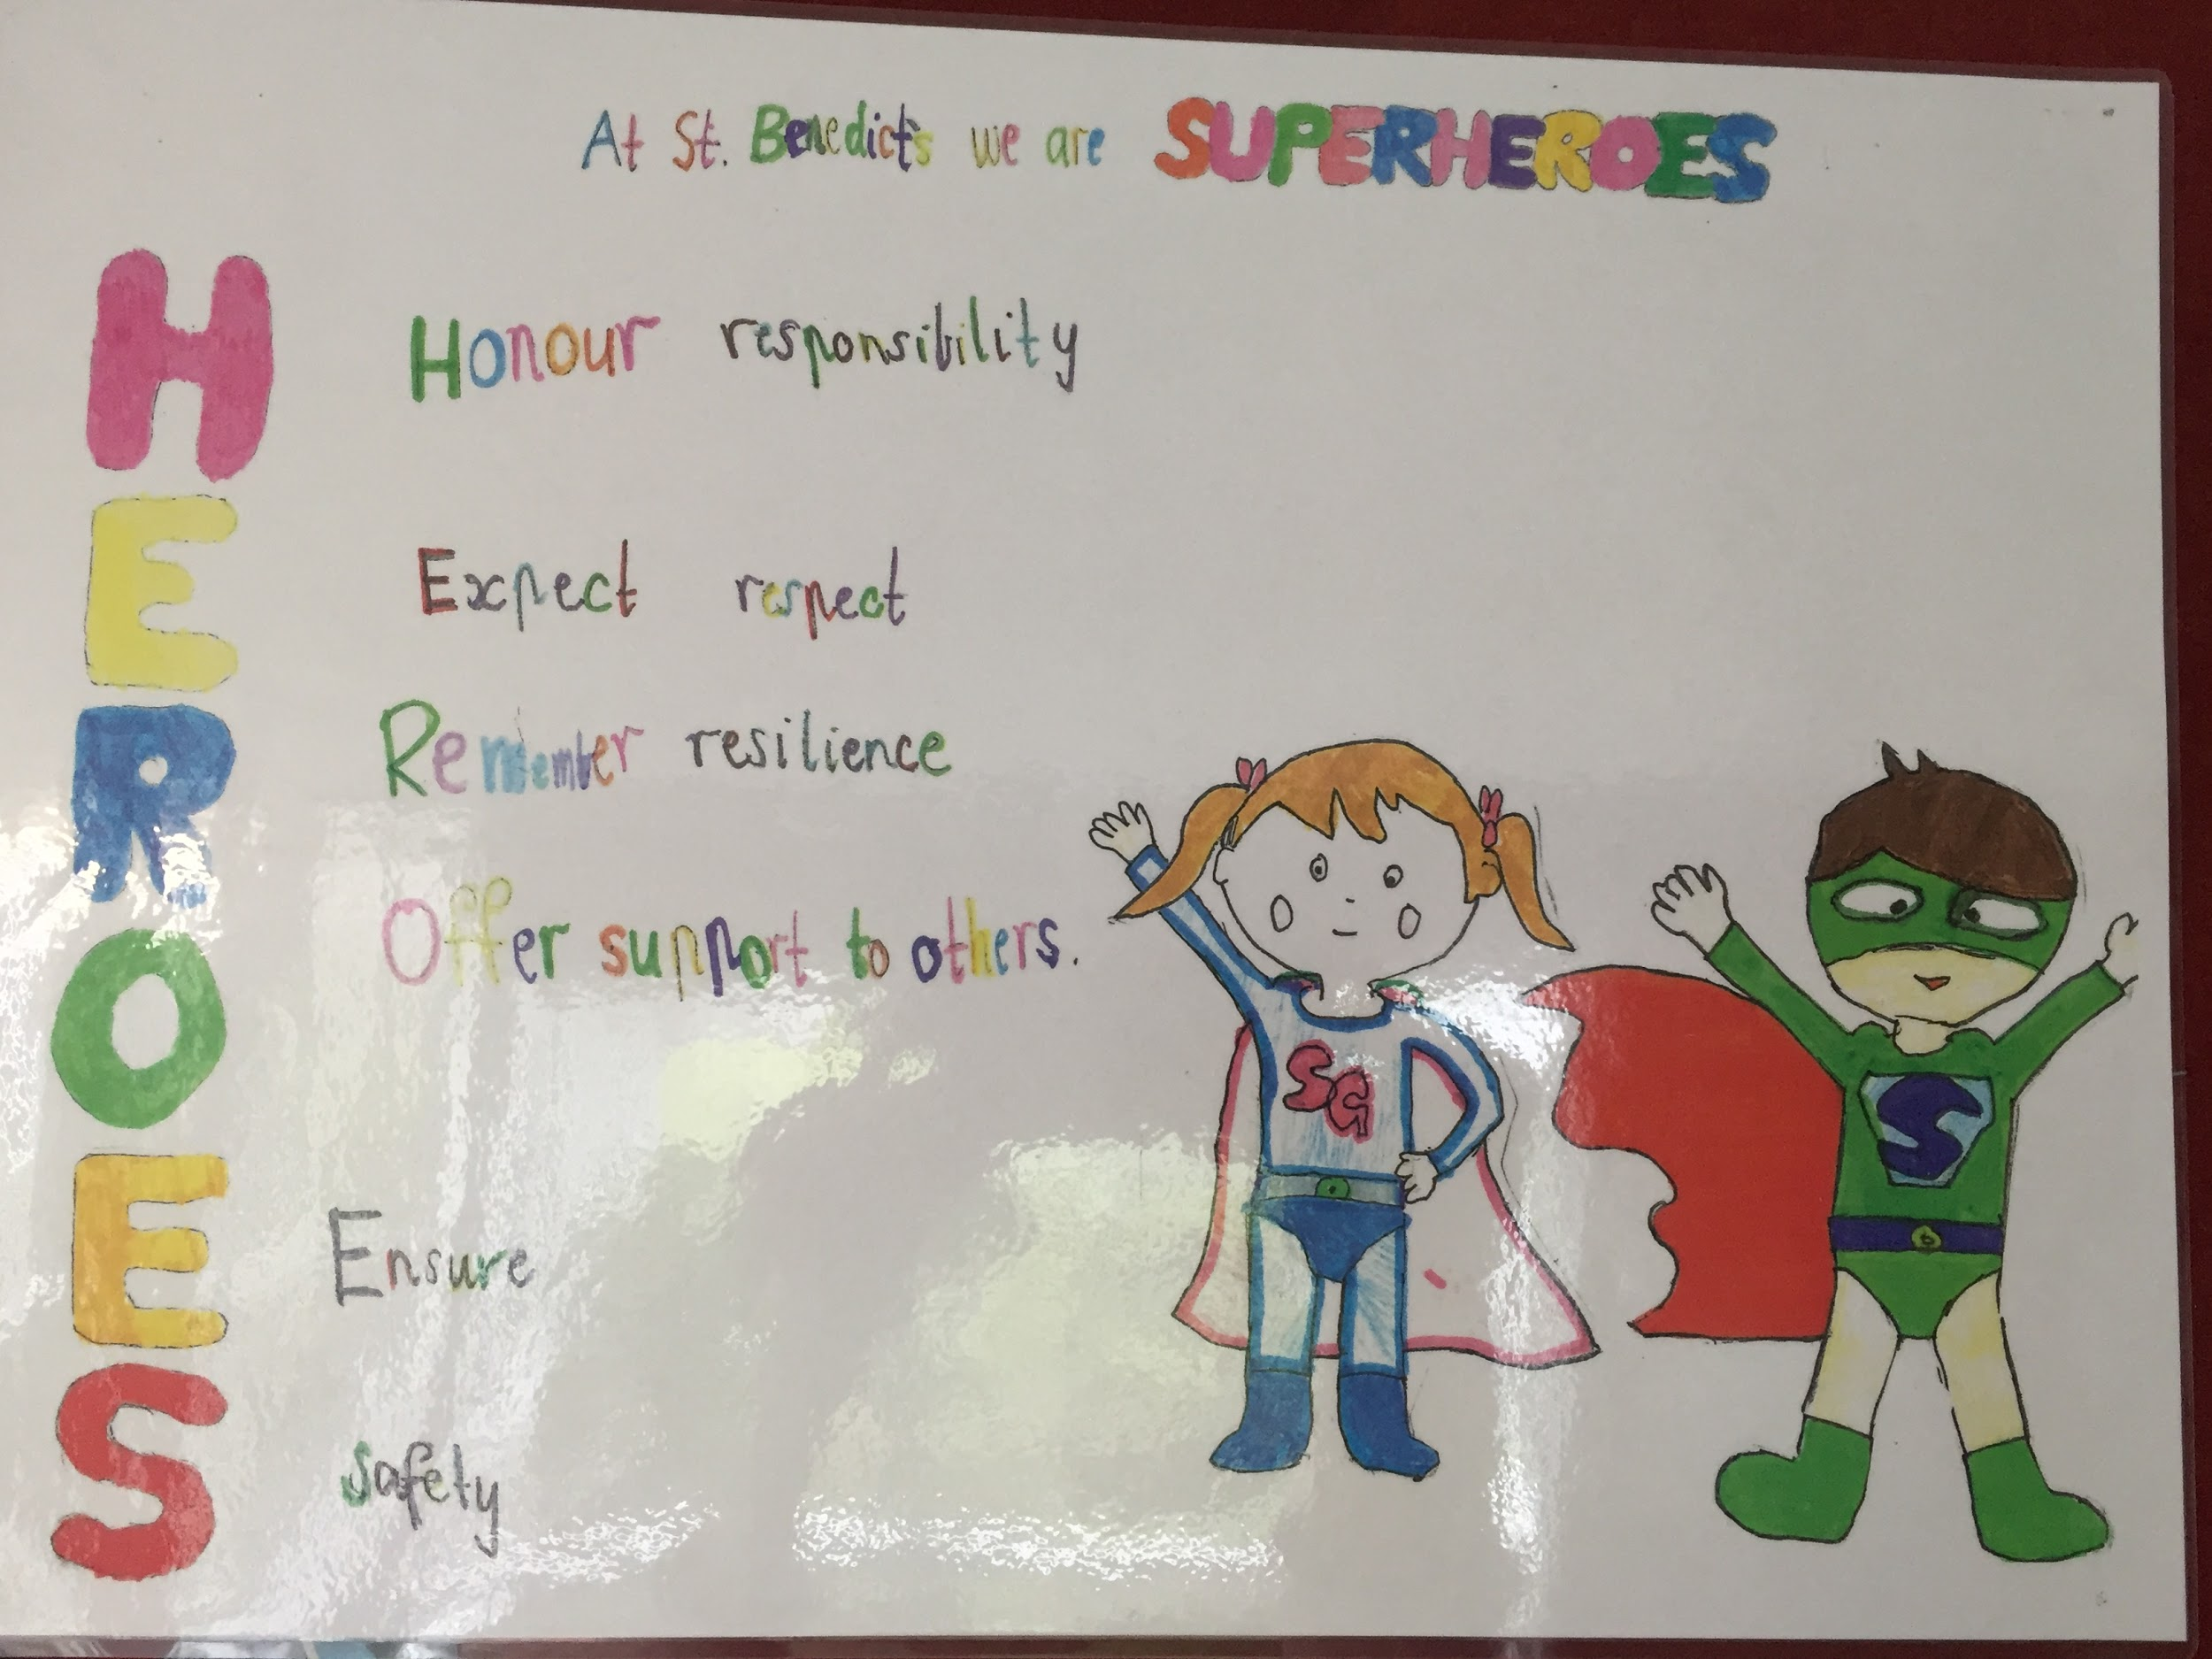 At St. Benedict's we are SUPERHEROES
H Honour responsibility
E Expect respect
R Remember resilience
O Offer support to others.
E Ensure
S Safety
SG
S